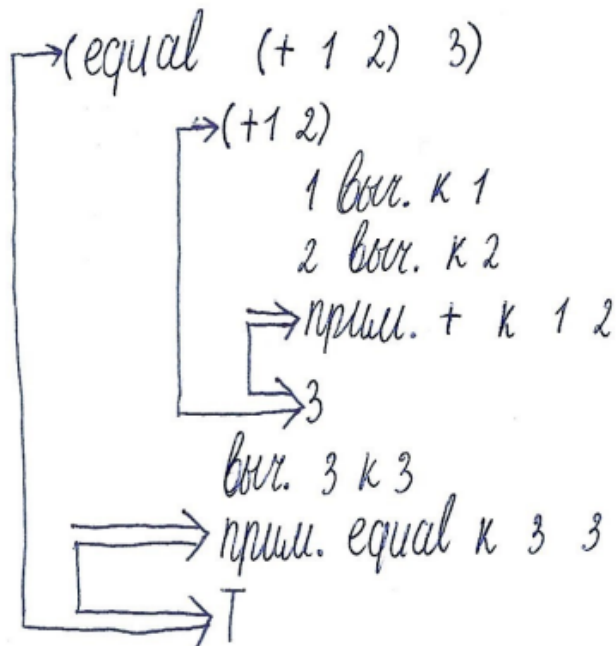 (equal (+ 1 2) 3)
(+1 2)
1 выч. к 1
2 выч. к 2
прим. + к 1 2
3
выч. 3 к 3
прим. equal к 3 3
T